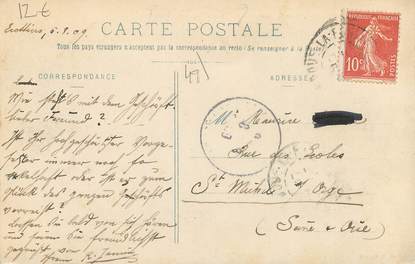 12 €
5.8.09.
CARTE POSTALE
Tous les pays étrangers n'acceptent pas la correspondance au recto (Se renseigner à la
CORRESPONDANCE
ADRESSE
10c
Wie steht's mit dem Geschäft
lieber Freund?
Ist Ihr hochgeschätzter Vorge-
setzter immer noch so
oder ist er zum
Glück des ganzen Geschäfts
verreist?
Lassen Sie bald von sich hören
und seien Sie freundlichst
gegrüsst von
Ihrem
Mr Maurice
Rue des Écoles
St Michel s/ Orge
(Seine & Oise)